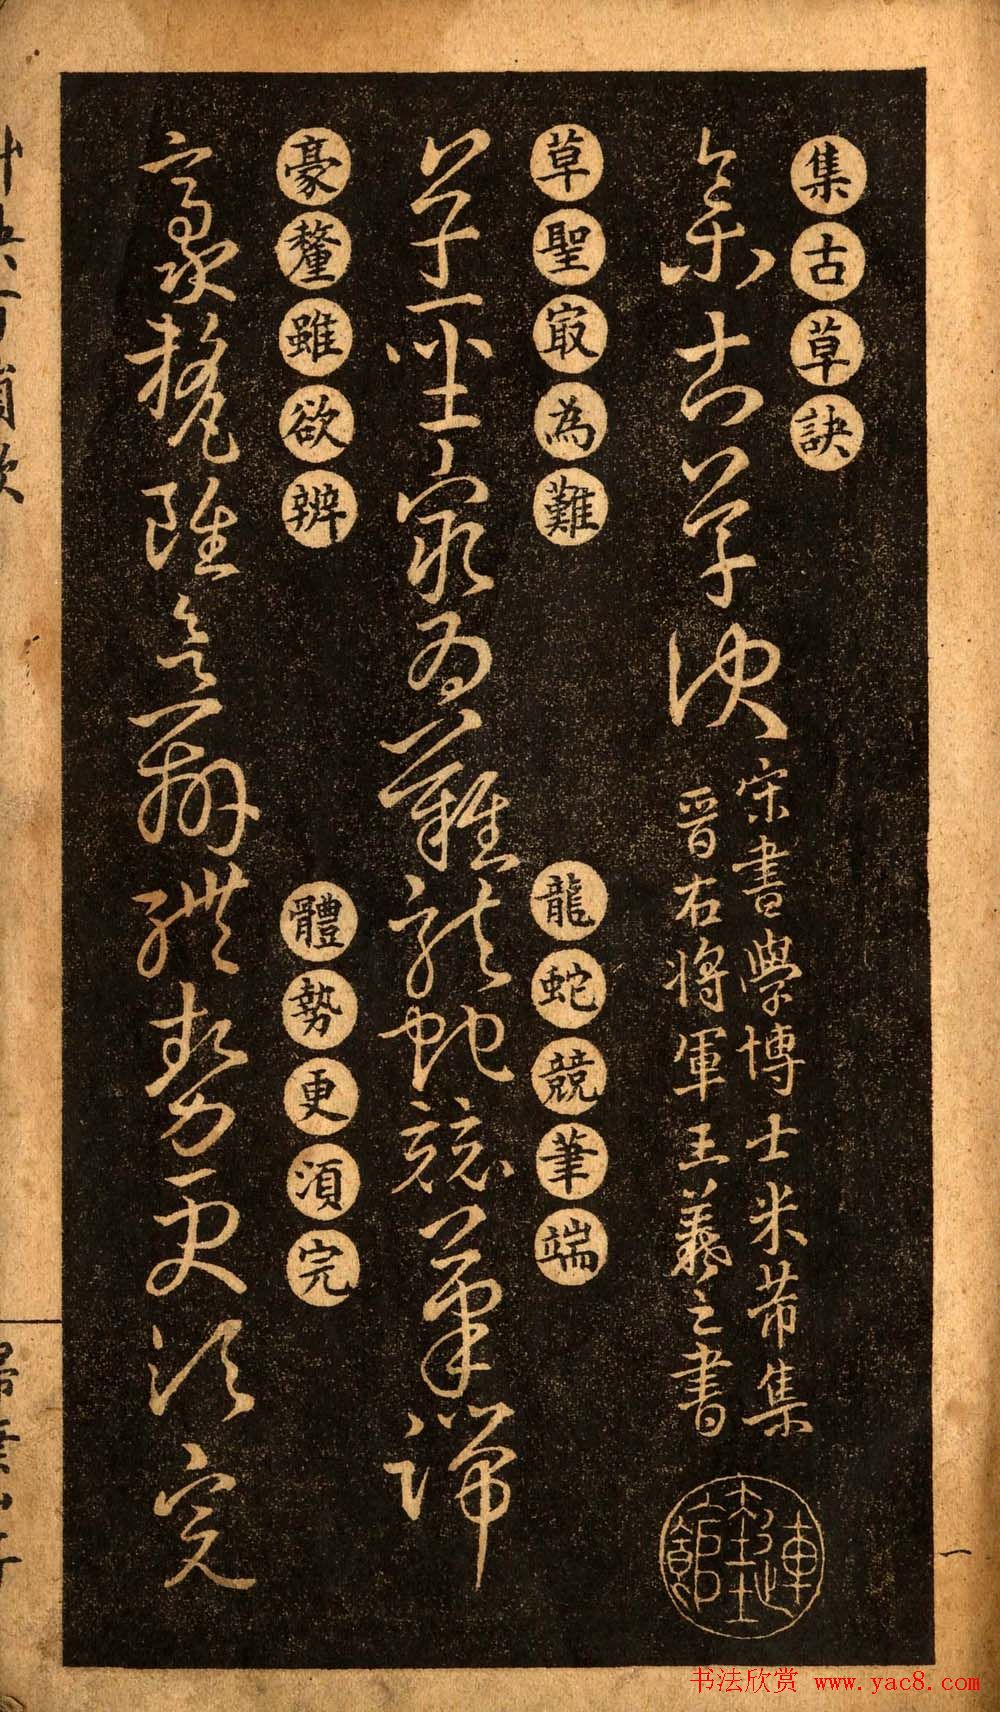 集古草訣
集古草訣
宋書學博士米芾集
晉右將軍王羲之書
草聖㝡為難
龍蛇競筆端
草聖㝡為難龍蛇競筆端
豪釐雖欲辨
體勢更須完
豪釐雖欲辨體勢更須完
一
书法欣赏 www.yac8.com